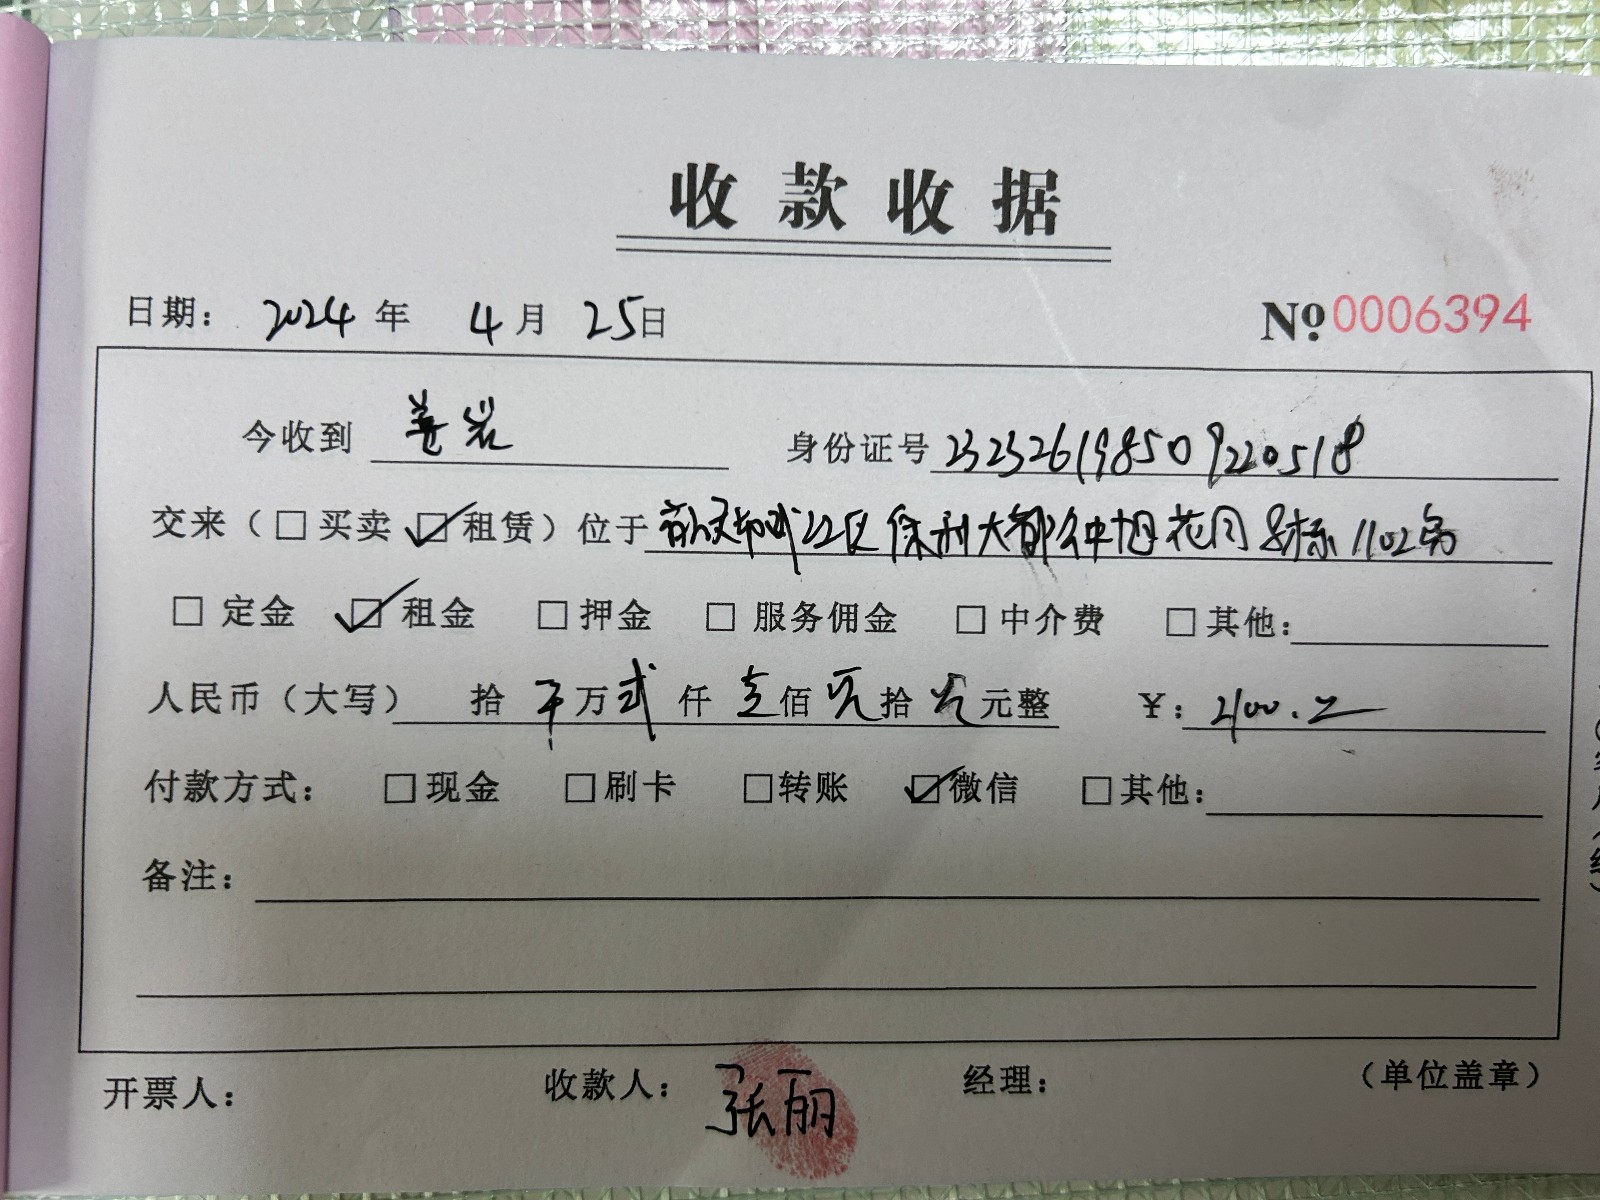 收款收据
日期： 2024 年 4 月 25 日 Nº 0006394
今收到 姜岩 身份证号 232326198509220518
交来（□ 买卖 ☑ 租赁）位于 保利大都 花园 8栋 1102
□ 定金 ☑ 租金 □ 押金 □ 服务佣金 □ 中介费 □ 其他：
人民币（大写） 拾 万 贰 仟 壹 佰 元 拾 元 元整 ¥： 2100.
付款方式： □ 现金 □ 刷卡 □ 转账 ☑ 微信 □ 其他：
备注：
开票人： 收款人： 张丽 经理： （单位盖章）